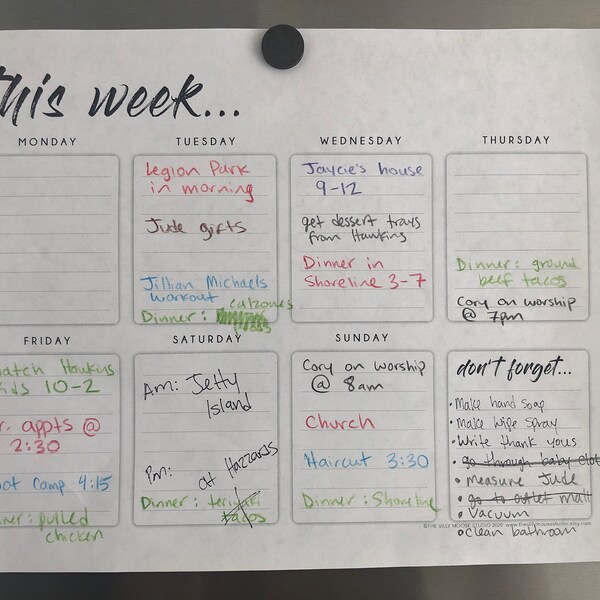 this week...
MONDAY
TUESDAY
Legion Park
in morning
Jude gifts
Jillian Michaels
workout
calzones
Dinner:
WEDNESDAY
Jaycie's house
9-12
get dessert trays
from Hawkins
Dinner in
Shoreline 3-7
THURSDAY
Dinner: ground
beef tacos
Cory on worship
@ 7pm
FRIDAY
watch Hawkins
kids 10-2
r. appts @
2:30
oot Camp 4:15
nner: pulled
chicken
SATURDAY
Am: Jetty
Island
Pm: at Hazzards
Dinner: teriyaki
tacos
SUNDAY
Cory on worship
@ 8am
Church
Haircut 3:30
Dinner: Shoreline
don't forget...
• Make hand soap
• Make wipe spray
• Write thank yous
• go through baby clot
• measure Jude
• go to outlet mall
• vacuum
• clean bathroom
©THE SILLY MOOSE STUDIO 2020